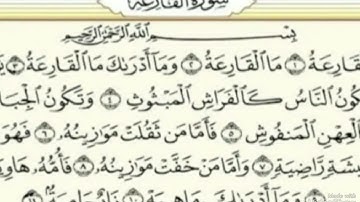 سُورَةُ القَارِعَة
بِسْمِ اللَّهِ الرَّحْمَٰنِ الرَّحِيمِ
لْقَارِعَةُ ۝١ مَا الْقَارِعَةُ ۝٢ وَمَا أَدْرَىٰكَ مَا الْقَارِعَةُ ۝٣
كُونُ النَّاسُ كَالْفَرَاشِ الْمَبْثُوثِ ۝٤ وَتَكُونُ الْجِبَا
الْعِهْنِ الْمَنفُوشِ ۝٥ فَأَمَّا مَن ثَقُلَتْ مَوَازِينُهُ ۝٦ فَهُوَ
يشَةٍ رَّاضِيَةٍ ۝٧ وَأَمَّا مَنْ خَفَّتْ مَوَازِينُهُ ۝٨ فَأُمُّهُ هَاوِيَ
۝٩ وَمَا أَدْرَىٰكَ مَا هِيَهْ ۝١٠ نَارٌ حَامِيَةٌ ۝١١